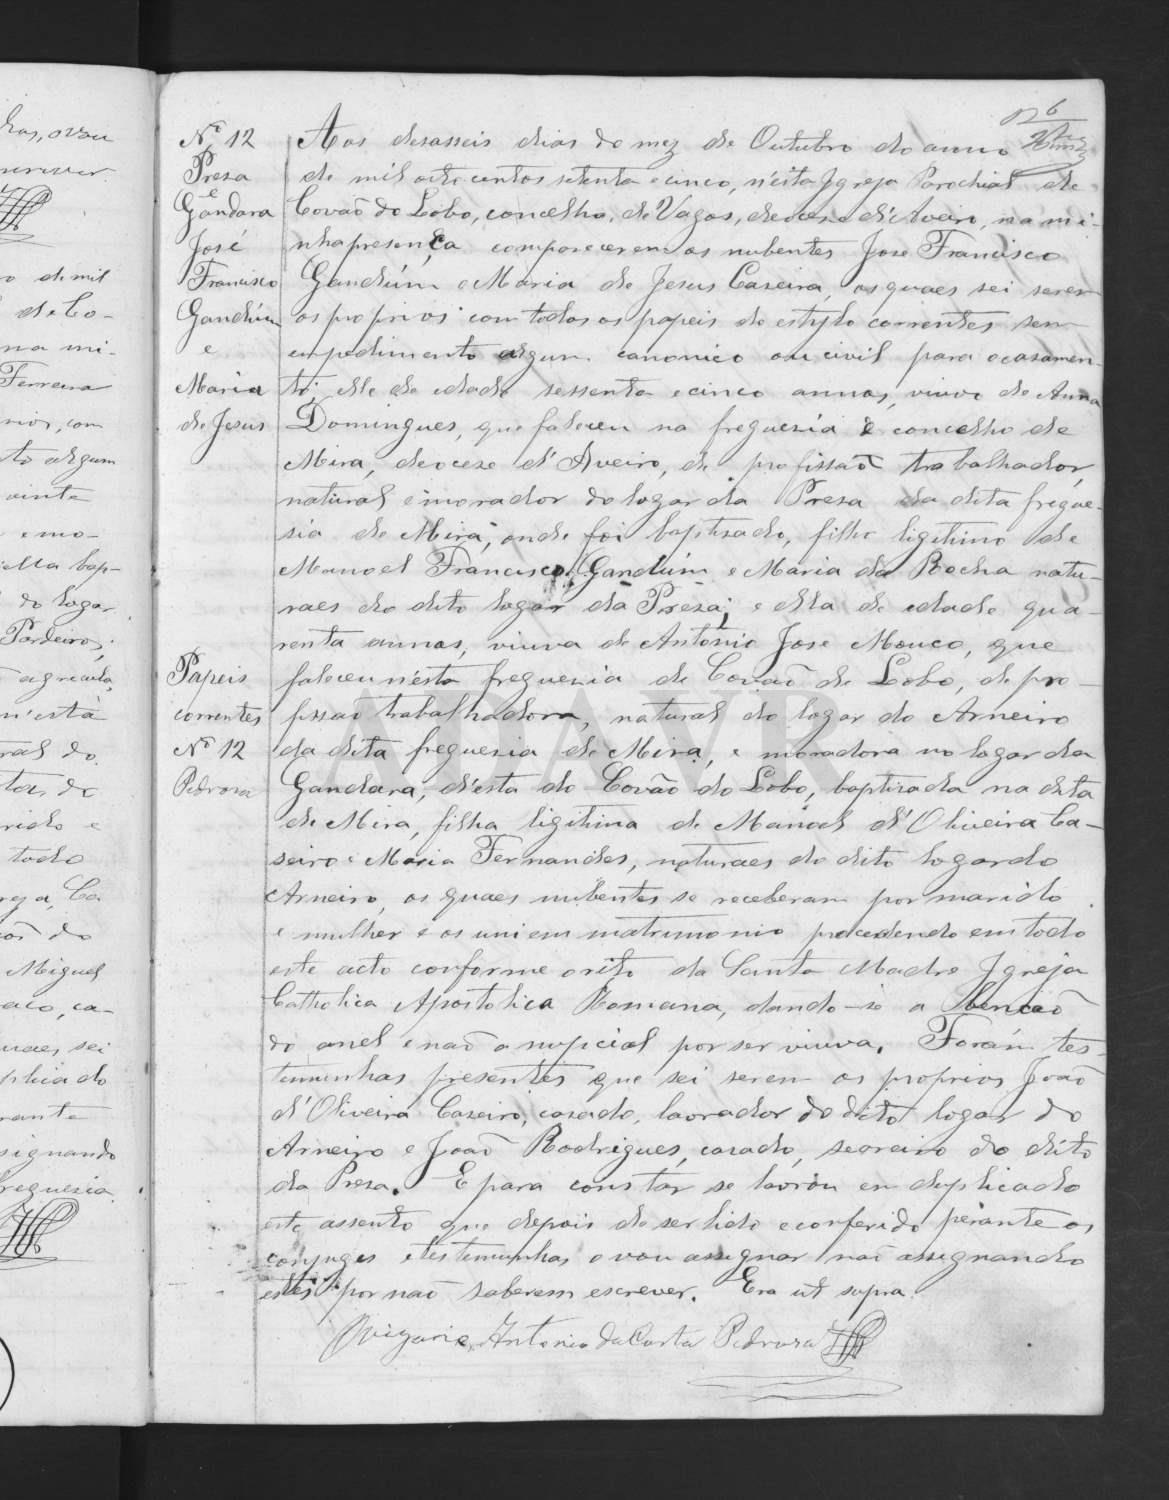 Nº 12
Presa
e
Gandara
José
Francisco
Gandúim
e
Maria
de Jesus
Papeis
correntes
Nº 12
Pedrosa
6
Aos desasseis dias do mez de Outubro do anno
de mil oito centos setenta e cinco, n'esta Igreja Parochial de
Covaõ do Lobo, concelho de Vagos, diocese d'Aveiro, na mi-
nha presença comparecerem os nubentes Jose Francisco
Gandúim e Maria de Jesus Caseira, os quaes sei serem
os proprios com todos os papeis do estylo correntes sem
impedimento algum canonico ou civil para o casamen-
to; elle de edade sessenta e cinco annos, viuvo de Anna
Domingues, que faleceu na freguesia e concelho de
Mira, deocese d'Aveiro, de profissaõ trabalhador,
natural e morador do logar da Presa da dita fregue-
sia de Mira, onde foi baptisado, filho ligitimo de
Manoel Francisco Gandúim e Maria da Rocha natu-
raes do dito logar da Presa; e ella de edade qua-
renta annos, viuva de Antonio Jose Mouco, que
faleceu n'esta freguezia de Covaõ de Lobo, de pro-
fissaõ trabalhadora, natural do logar do Arneiro
da dita freguezia de Mira, e moradora no logar da
Gandara, d'esta do Covão do Lobo, baptizada na dita
de Mira, filha ligitima de Manoel d'Oliveira Ca-
seiro e Maria Fernandes, naturaes do dito logar do
Arneiro, os quaes nubentes se receberam por marido
e mulher e os uni em matrimonio procedendo em todo
este acto conforme o rito da Santa Madre Igreja
Catholica Apostolica Romana, dando-se a bençaõ
do anel e naõ a nupcial por ser viuva. Forám tes-
temunhas presentes que sei serem os proprios Joaõ
d'Oliveira Caseiro, casado, lavrador do dito logar do
Arneiro e Joaõ Rodrigues, casado, seareiro do dito
da Presa. E para constar se lavrou em duplicado
este assento que depois de ser lido e conferido perante os
conjuges e testemunhas o vou assignar naõ assignando
estes por naõ saberem escrever. Era ut supra.
O Vigario, Antonio da Costa Pedrosa
ADAVR